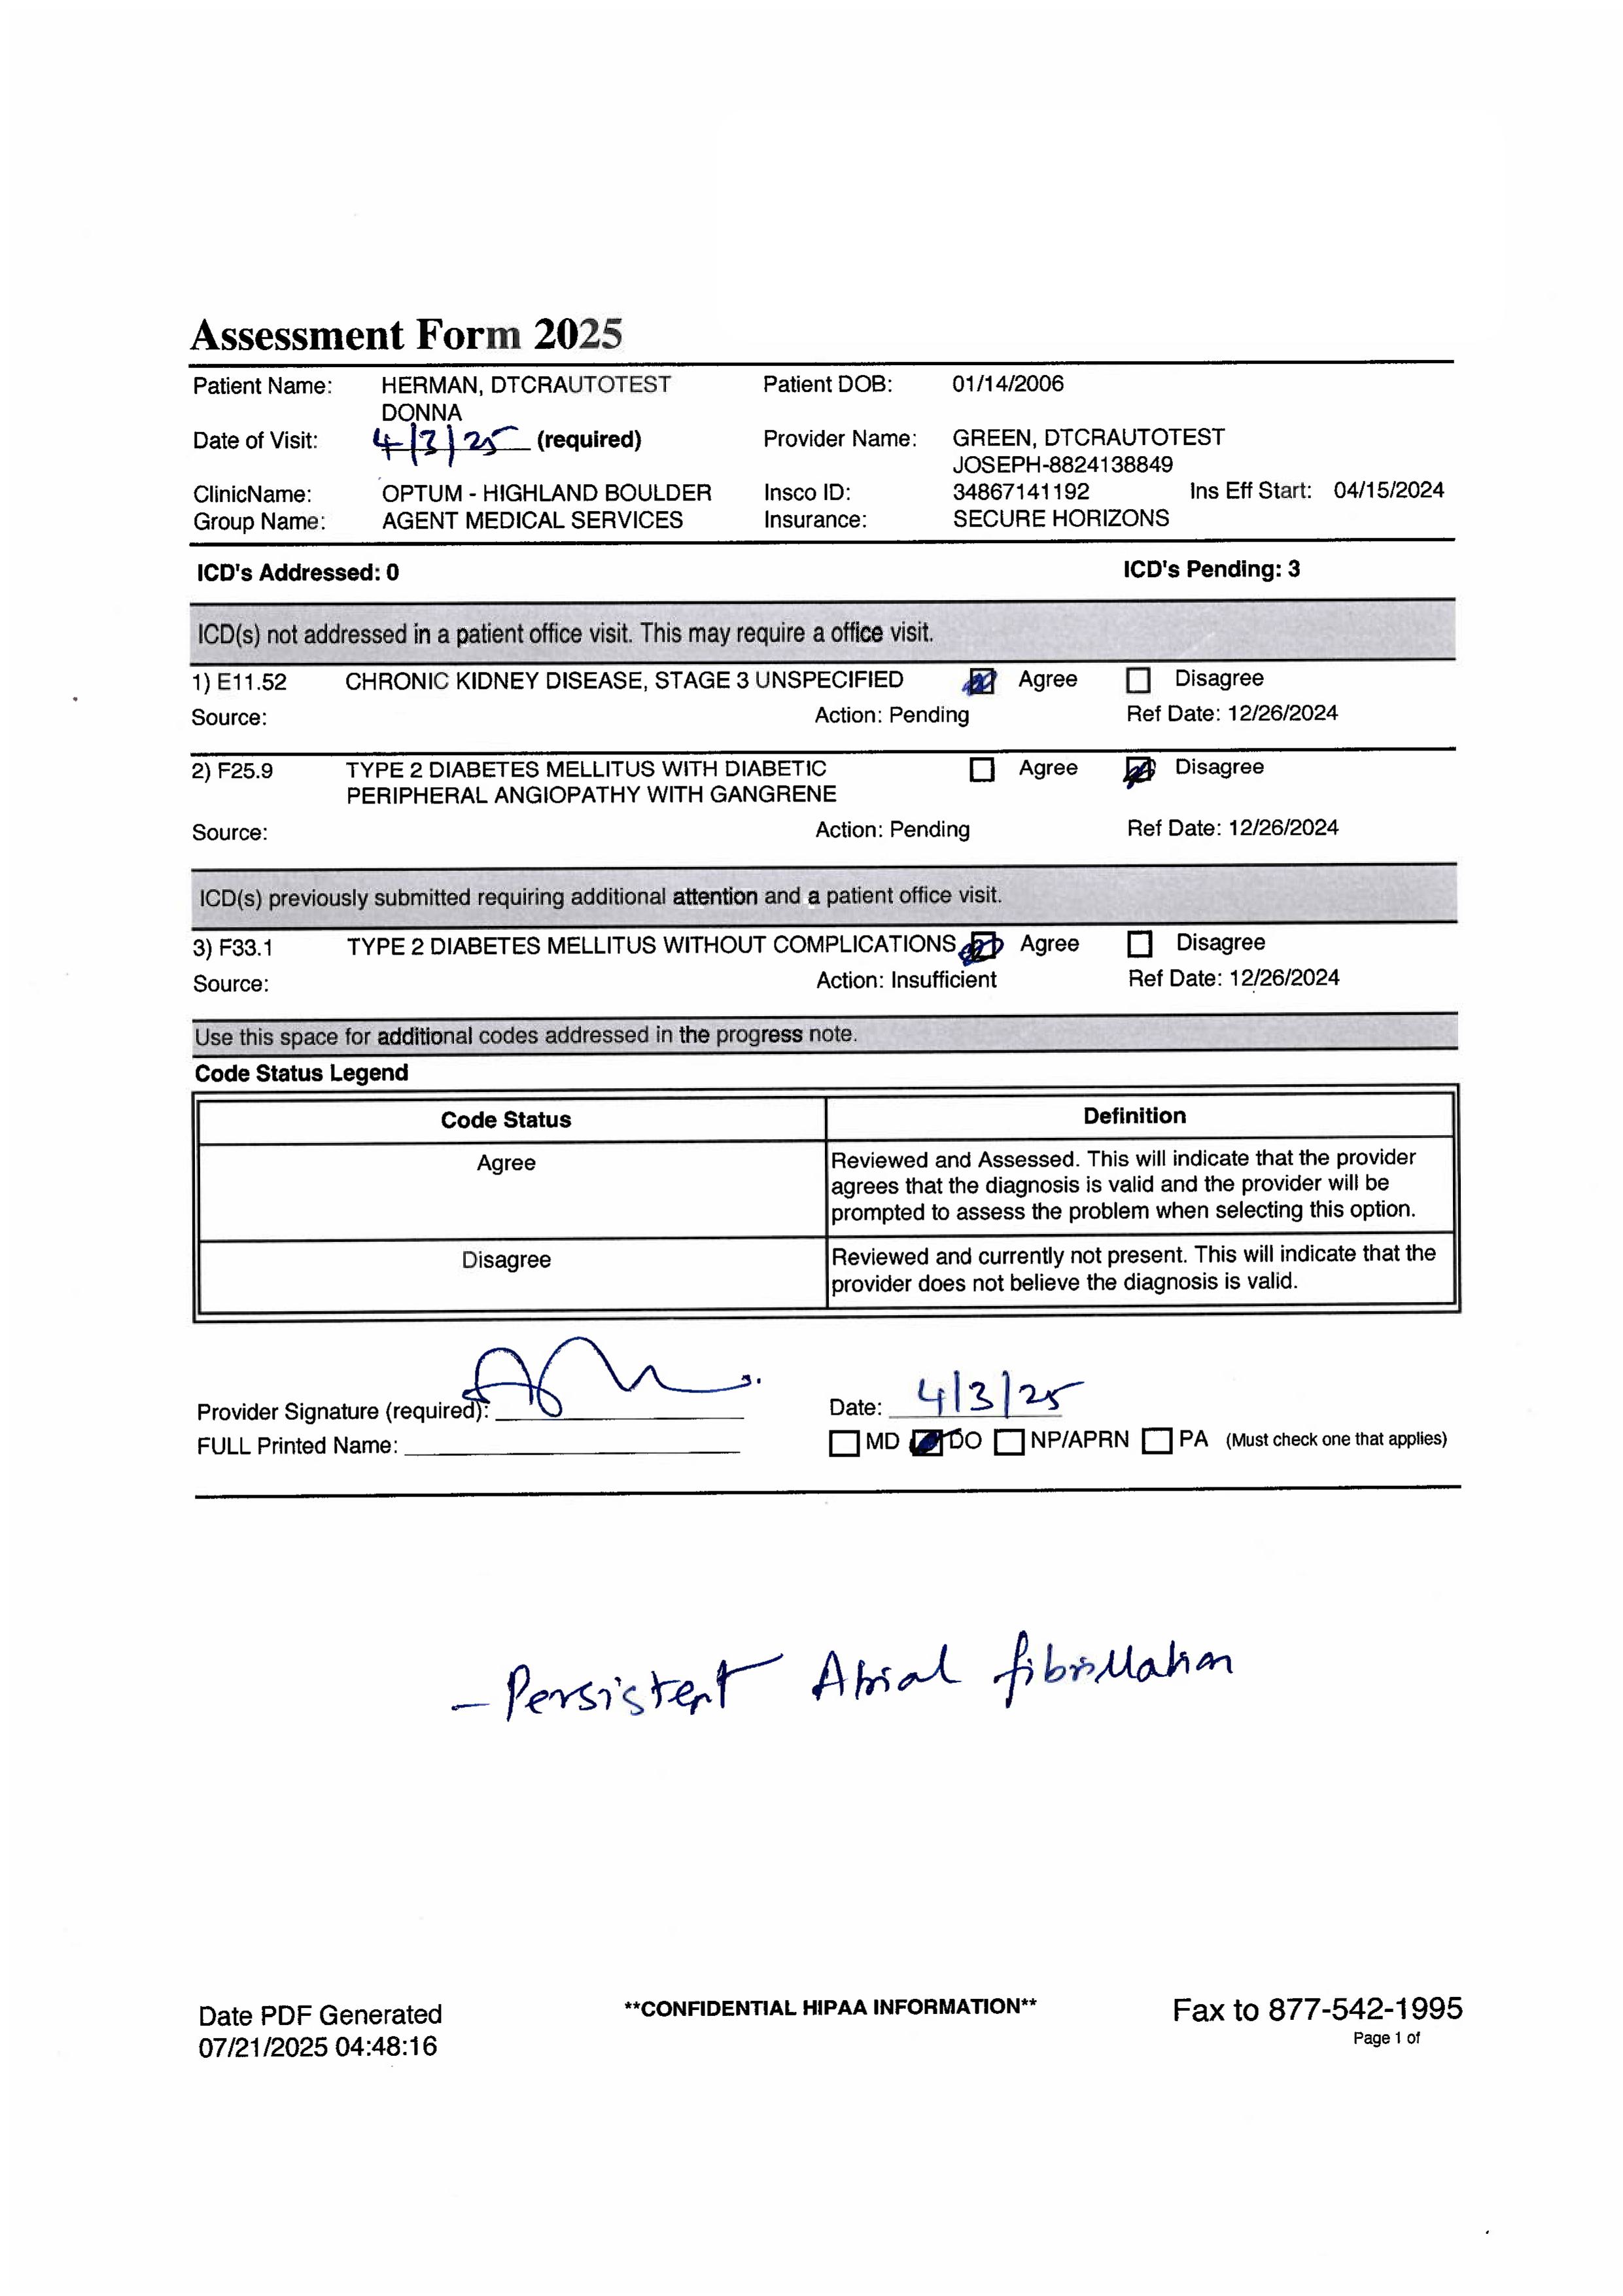 Assessment Form 2025
Patient Name: HERMAN, DTCRAUTOTEST Patient DOB: 01/14/2006
DONNA
Date of Visit: 4/3/25 (required) Provider Name: GREEN, DTCRAUTOTEST
JOSEPH-8824138849
ClinicName: OPTUM - HIGHLAND BOULDER Insco ID: 34867141192 Ins Eff Start: 04/15/2024
Group Name: AGENT MEDICAL SERVICES Insurance: SECURE HORIZONS
ICD's Addressed: 0 ICD's Pending: 3
ICD(s) not addressed in a patient office visit. This may require a office visit.
1) E11.52 CHRONIC KIDNEY DISEASE, STAGE 3 UNSPECIFIED Agree Disagree
Source: Action: Pending Ref Date: 12/26/2024
2) F25.9 TYPE 2 DIABETES MELLITUS WITH DIABETIC Agree Disagree
PERIPHERAL ANGIOPATHY WITH GANGRENE
Source: Action: Pending Ref Date: 12/26/2024
ICD(s) previously submitted requiring additional attention and a patient office visit.
3) F33.1 TYPE 2 DIABETES MELLITUS WITHOUT COMPLICATIONS Agree Disagree
Source: Action: Insufficient Ref Date: 12/26/2024
Use this space for additional codes addressed in the progress note.
Code Status Legend
Code Status Definition
Agree Reviewed and Assessed. This will indicate that the provider
agrees that the diagnosis is valid and the provider will be
prompted to assess the problem when selecting this option.
Disagree Reviewed and currently not present. This will indicate that the
provider does not believe the diagnosis is valid.
Provider Signature (required): Date: 4/3/25
FULL Printed Name: MD DO NP/APRN PA (Must check one that applies)
- Persistent Atrial fibrillation
Date PDF Generated **CONFIDENTIAL HIPAA INFORMATION** Fax to 877-542-1995
07/21/2025 04:48:16 Page 1 of